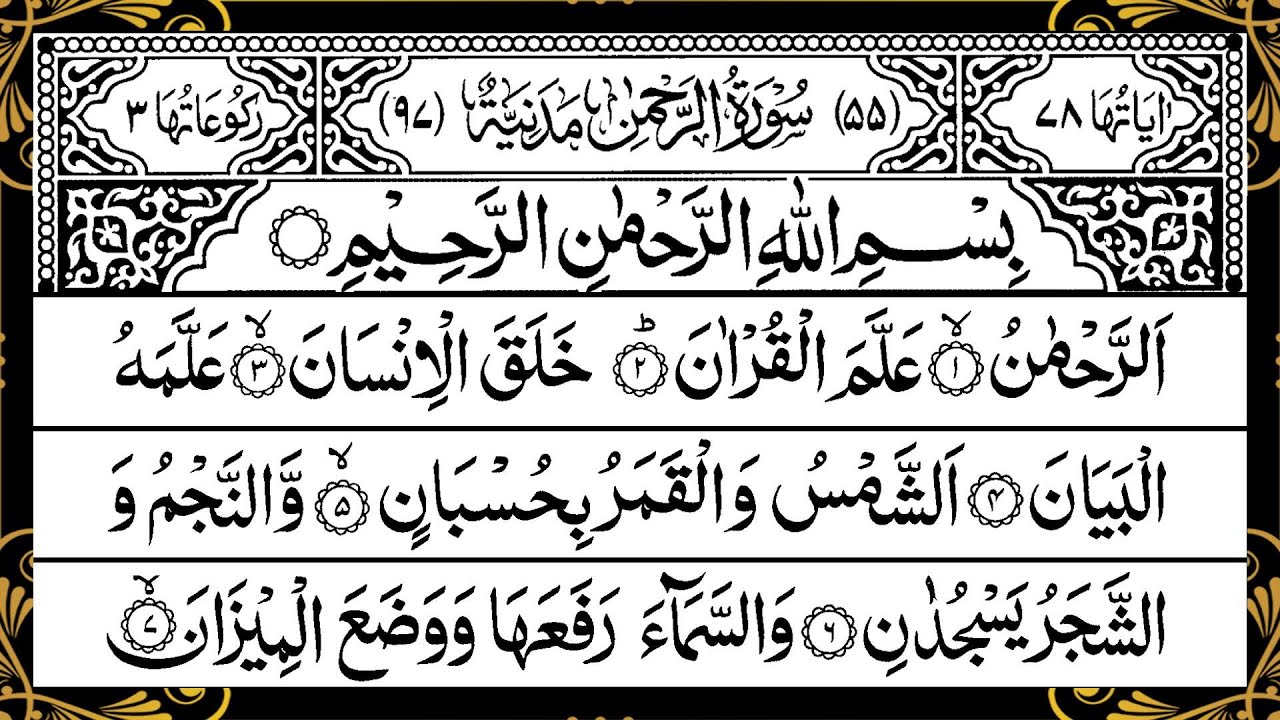 اٰیَاتُهَا ۷۸ (۵۵) سُوْرَةُ الرَّحْمٰنِ مَدَنِيَّةٌ (۹۷) رُكُوْعَاتُهَا ۳
بِسْمِ اللّٰهِ الرَّحْمٰنِ الرَّحِيْمِ ۝
اَلرَّحْمٰنُ ۝۱ۙ عَلَّمَ الْقُرْاٰنَ ۝۲ؕ خَلَقَ الْاِنْسَانَ ۝۳ۙ عَلَّمَهُ
الْبَيَانَ ۝۴ اَلشَّمْسُ وَالْقَمَرُ بِحُسْبَانٍ ۝۵ۙ وَّالنَّجْمُ وَ
الشَّجَرُ يَسْجُدٰنِ ۝۶ وَالسَّمَآءَ رَفَعَهَا وَوَضَعَ الْمِيْزَانَ ۝۷ۙ